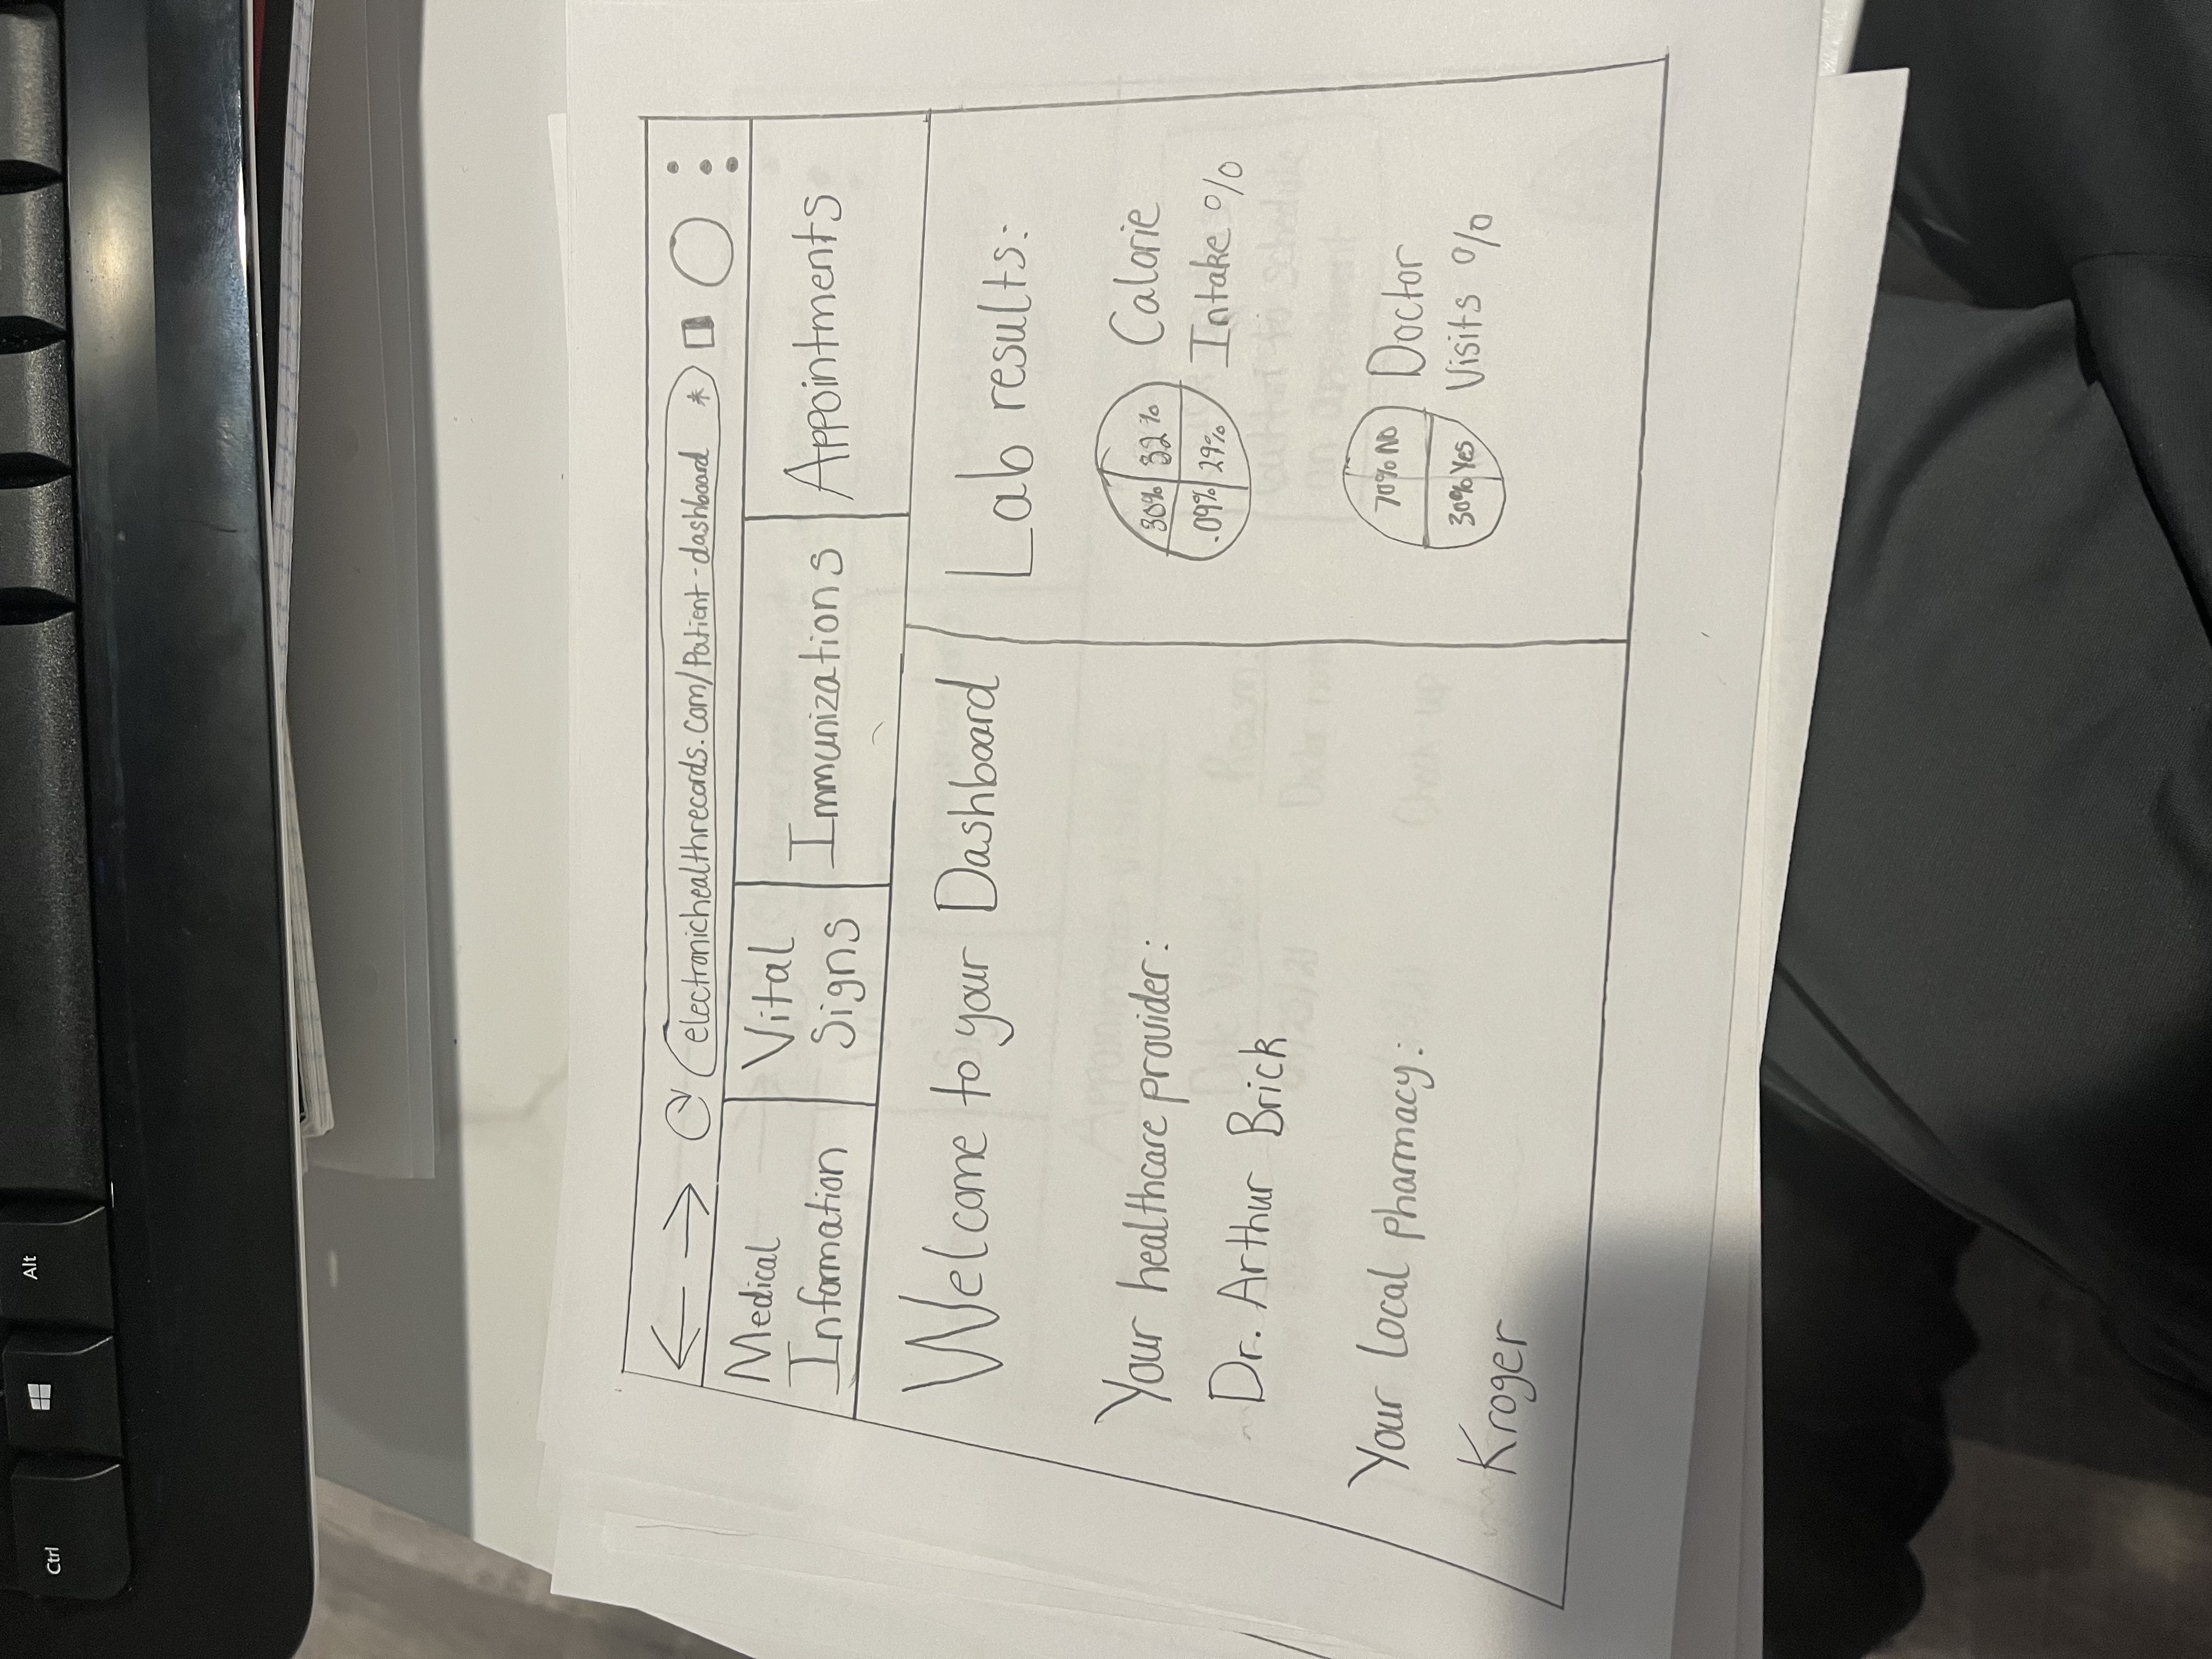 electronichealthrecords.com/Patient-dashboard *
Medical
Information
Vital
Signs
Immunizations
Appointments
Welcome to your Dashboard
Your healthcare provider:
Dr. Arthur Brick
Your local pharmacy:
Kroger
Lab results:
30% 32%
.09% 29%
Calorie
Intake %
70% No
30% Yes
Doctor
Visits %
Ctrl
Alt